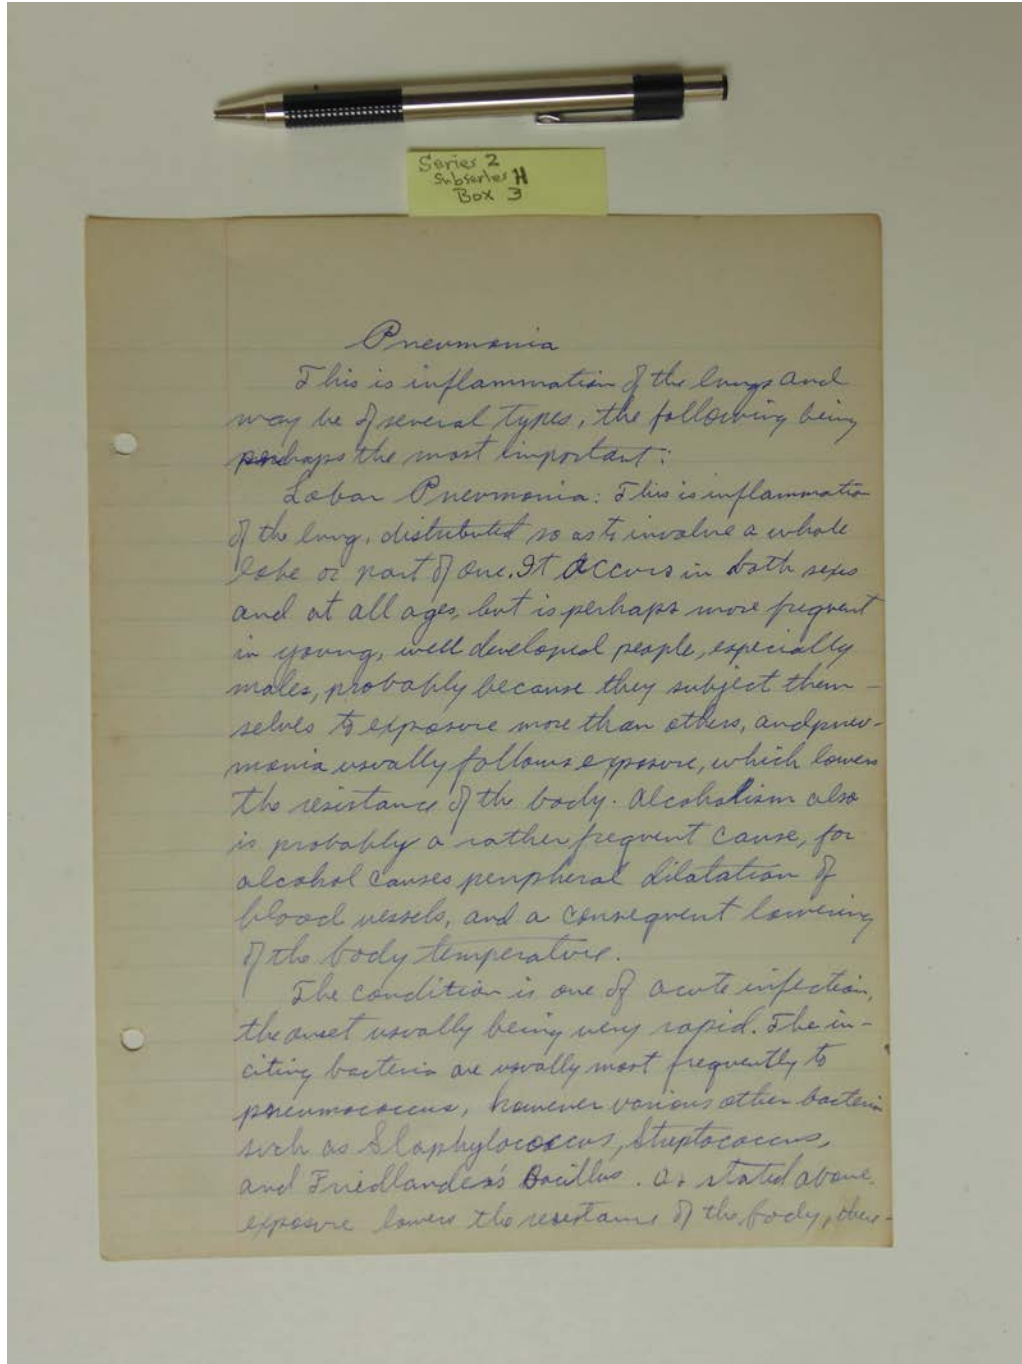 Series 2
Subseries H
Box 3
Pneumonia
This is inflammation of the lungs and
may be of several types, the following being
perhaps the most important:
Lobar Pneumonia: This is inflammation
of the lung, distributed so as to involve a whole
lobe or part of one. It occurs in both sexes
and at all ages, but is perhaps more frequent
in young, well developed people, especially
males, probably because they subject them-
selves to exposure more than others, and pneu-
monia usually follows exposure, which lowers
the resistance of the body. Alcoholism also
is probably a rather frequent cause, for
alcohol causes peripheral dilatation of
blood vessels, and a consequent lowering
of the body temperature.
The condition is one of acute infection,
the onset usually being very rapid. The in-
citing bacteria are usually most frequently to
pneumococcus, however various other bacteria
such as Staphylococcus, Streptococcus,
and Friedlander's Bacillus. As stated above,
exposure lowers the resistance of the body, there-